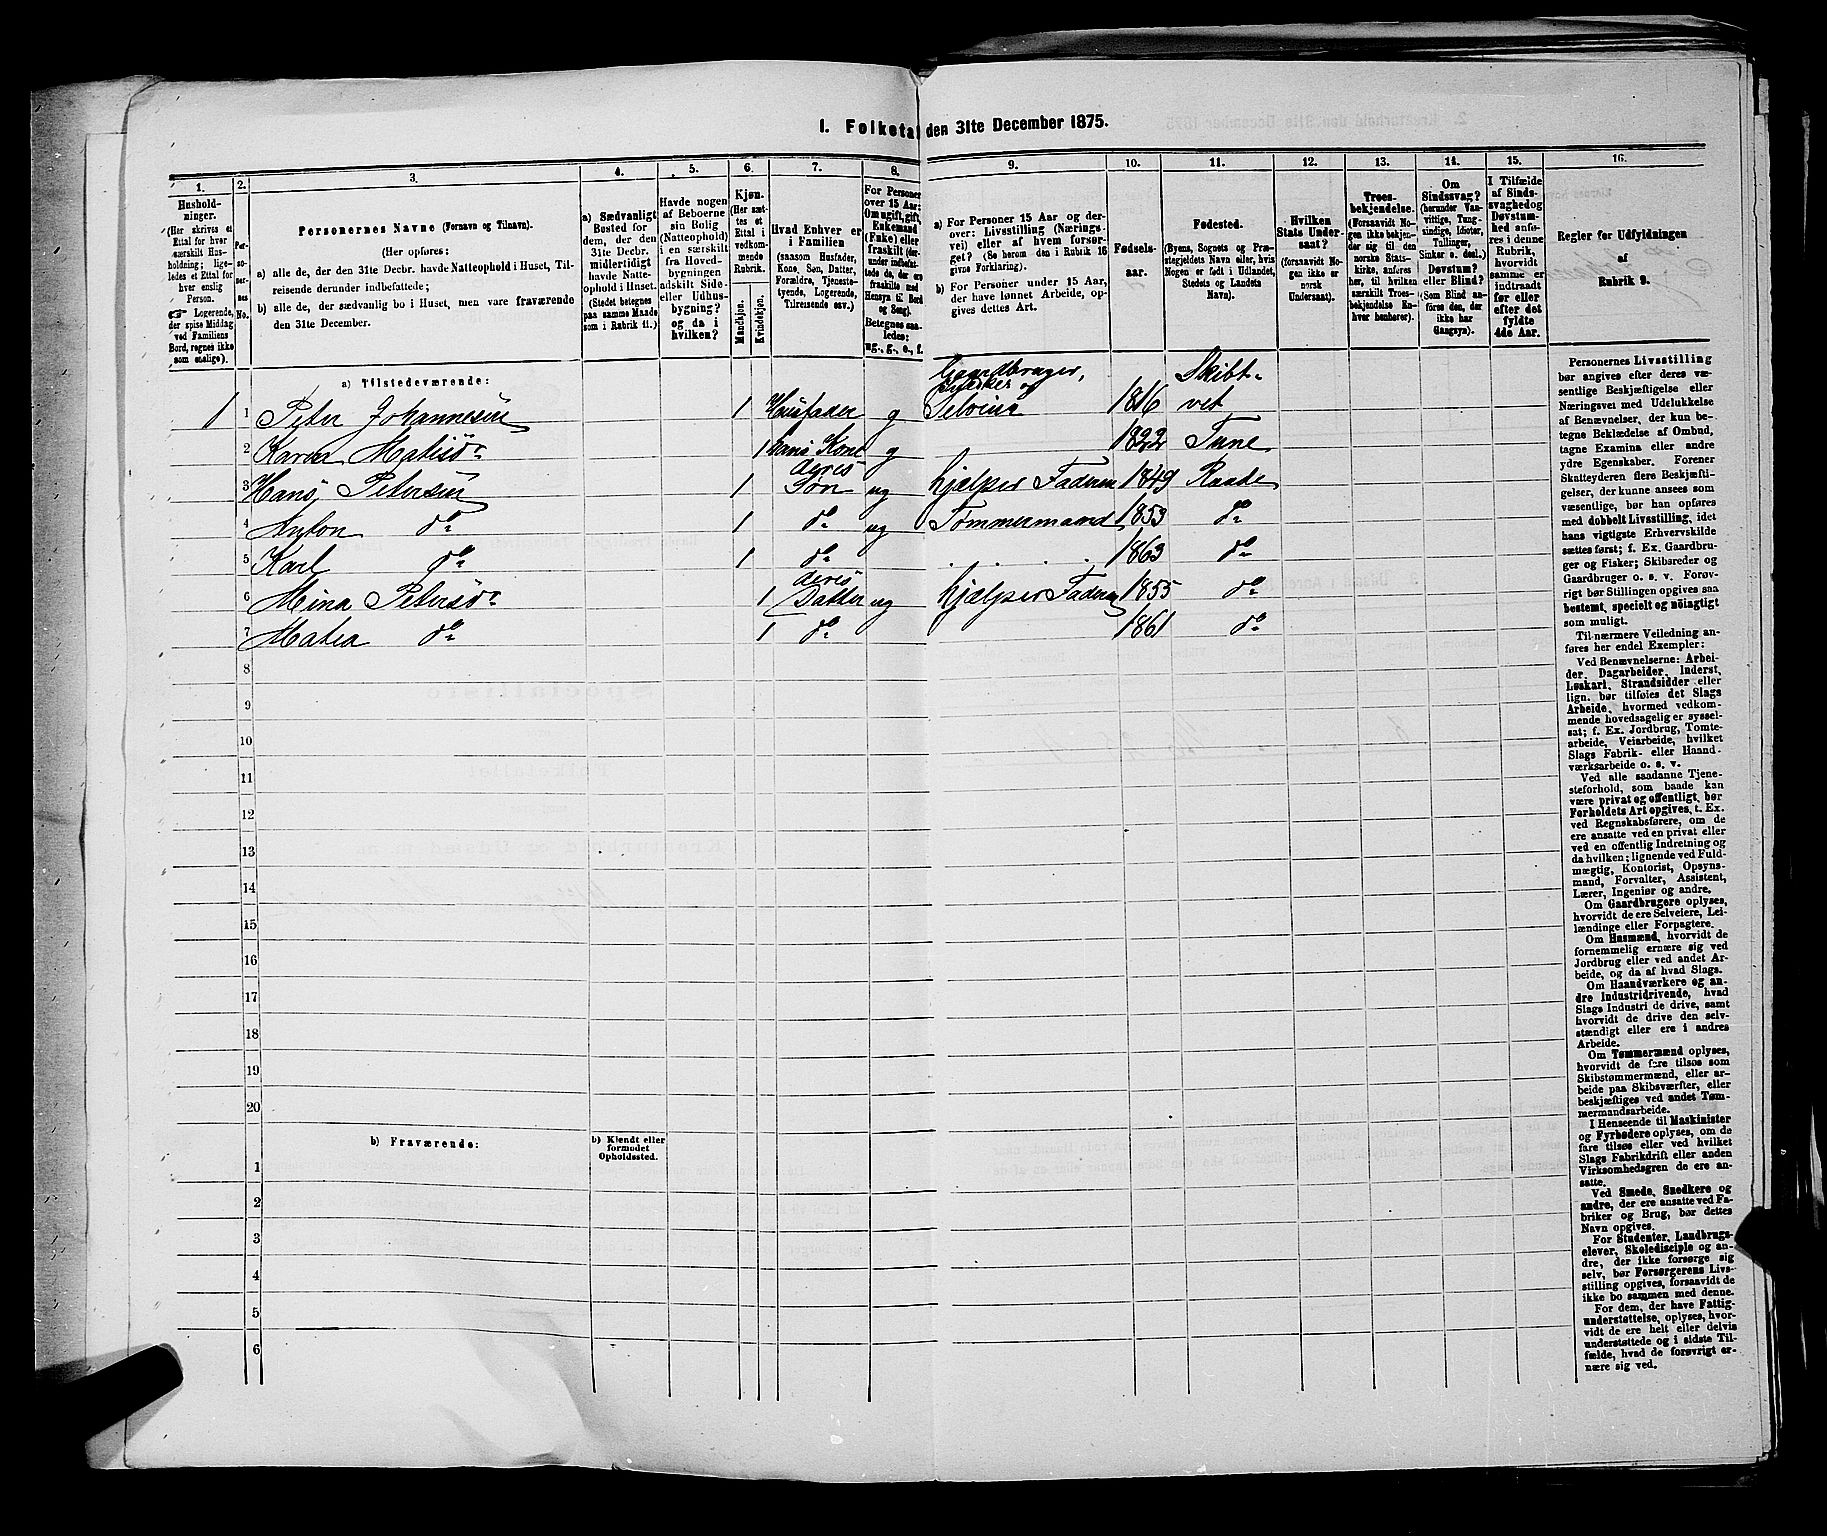 1. Folketal den 31te December 1875.
1. 2. 3. 4. 5. 6. 7. 8. 9. 10. 11. 12. 13. 14. 15. 16.
Hushold-
ninger.
(Her skrives et
Ettal for hver
særskilt Hus-
holdning; lige-
ledes et Ettal for
hver enslig
Person.
Logerende,
der spise Middag
ved Familiens
Bord, regnes ikke
som enslige).
Per-
so-
ner-
nes
No.
Personernes Navne (Fornavn og Tilnavn).
(Her opføres:
a) alle de, der den 31te Decbr. havde Natteophold i Huset, Til-
reisende derunder indbefattede;
b) alle de, der sædvanlig bo i Huset, men vare fraværende
den 31te December.
a) Sædvanligt
Bosted for
dem, der den
31te Decbr.
midlertidigt
havde Natte-
ophold i Huset.
(Stedet betegnes
paa samme Maade
som i Rubrik 11.)
Havde nogen
af Beboerne
sin Bolig
(Natteophold)
i en særskilt
fra Hoved-
bygningen
adskilt Side-
eller Udhus-
bygning?
og da i
hvilken?
Kjøn.
(Her sæt-
tes et
Ettal i
vedkom-
mende
Rubrik.
Mandkjøn.
Kvindekjøn.
Hvad Enhver er
i Familien
(saasom Husfader,
Kone, Søn, Datter,
Forældre, Tjeneste-
tyende, Logerende,
Tilreisende osv.)
For Personer
over 15 Aar:
Om ugift, gift,
Enkemand
(Enke) eller
fraskilt (der-
under indbefat-
tede de, der ere
fraskilte med
Hensyn til Bord
og Seng).
Betegnes saa-
ledes:
ug., g., e., f.
a) For Personer 15 Aar og der-
over: Livsstilling (Nærings-
vei) eller af hvem forsør-
get? (Se herom den i Rubrik 16
givne Forklaring).
b) For Personer under 15 Aar,
der have lønnet Arbeide, op-
gives dettes Art.
Fødsels-
aar.
Fødested.
(Byens, Sognets og Præ-
stegjeldets Navn eller, hvis
Nogen er født i Udlandet,
Stedets og Landets
Navn).
Hvilken
Stats Under-
saat?
(forsaavidt No-
gen ikke er
norsk
Undersaat).
Troes-
bekjendelse.
(Forsaavidt No-
gen ikke bekjen-
der sig til den
norske Stats-
kirke, anføres
her, til hvilken
særskilt Troes-
bekjendelse En-
hver henhører).
Om
Sindssvag?
(herunder Van-
vittige, Tung-
sindige, Idioter,
Tullinger,
Sinker o. desl.)
Døvstum?
eller Blind?
(Som Blind an-
føres den, der
ikke har
Gangsyn).
I Tilfælde
af Sinds-
svaghed og
Døvstum-
hed anfø-
res i denne
Rubrik,
hvorvidt
samme er
indtraadt
før eller
efter det
fyldte
4de Aar.
Regler for Udfyldningen
af
Rubrik 9.
a) Tilstedeværende:
1 1 Peter Johannesen 1 Husfader g Gaardbruger, Snedker og Selveier 1816 Skibtvet
2 Karen Matisd. 1 hans Kone g 1822 Tune
3 Hans Petersen 1 deres Søn ug hjælper Faderen 1849 Raade
4 Anton do 1 do ug Tømmermand 1853 do
5 Karl do 1 do . . . . 1863 do
6 Mina Petersd. 1 deres Datter ug hjælper Faderen 1855 do
7 Matea do 1 do 1861 do
8
9
10
11
12
13
14
15
16
17
18
19
20
b) Fraværende:
b) Kjendt eller
formodet
Opholdssted.
1
2
3
4
5
6
Personernes Livsstilling
bør angives efter deres væ-
sentlige Beskjæftigelse eller
Næringsvei med Udelukkelse
af Benævnelser, der kun be-
tegne Beklædelse af Ombud,
tagne Examina eller andre
ydre Egenskaber. Forener
Skatteyderen flere Beskjæfti-
gelser, der kunne ansees som
væsentlige, bør han opføres
med dobbelt Livsstilling, idet
hans vigtigste Erhvervskilde
sættes først; f. Ex. Gaardbru-
ger og Fisker; Skibsreder og
Gaardbruger o. s. v. Forøv-
rigt bør Stillingen opgives saa
bestemt, specielt og nøiagtigt
som muligt.
Til nærmere Veiledning an-
føres her endel Exempler:
Ved Benævnelserne: Arbei-
der, Dagarbeider, Inderst,
Løskarl, Strandsidder eller
lign. bør tilføies det Slags
Arbeide, hvormed vedkom-
mende hovedsagelig er syssel-
sat; f. Ex. Jordbrug, Tomte-
arbeide, Veiarbeide, hvilket
Slags Fabrik- eller Haand-
værksarbeide o. s. v.
Ved alle saadanne Tjene-
steforhold, som baade kan
være privat og offentligt, bør
Forholdets Art opgives, t. Ex.
ved Regnskabsførere, om de
ere ansatte ved en privat eller
ved en offentlig Indretning og
da hvilken; lignende ved Fuld-
mægtig, Kontorist, Opsyns-
mand, Forvalter, Assistent,
Lærer, Ingeniør og andre.
Om Gaardbrugere oplyses,
hvorvidt de ere Selveiere, Lei-
lændinge eller Forpagtere.
Om Husmænd, hvorvidt de
fornemmelig ernære sig ved
Jordbrug eller ved andet Ar-
beide, og da af hvad Slags.
Om Haandværkere og an-
dre Industridrivende, hvad
Slags Industri de drive, samt
hvorvidt de drive den selv-
stændigt eller ere i andres
Arbeide.
Om Tømmermænd oplyses,
hvorvidt de fare tilsøs som
Skibstømmermænd, eller ar-
beide paa Skibsværfter, eller
beskjæftiges ved andet Tøm-
mermandsarbeide.
I Henseende til Maskinister
og Fyrbødere oplyses, om de
fare tilsøs eller ved hvilket
Slags Fabrikdrift eller anden
Virksomhedsgren de ere an-
satte.
Ved Smede, Snedkere og
andre, der ere ansatte ved Fa-
briker og Brug, bør dettes
Navn opgives.
For Studenter, Landbrugs-
elever, Skoledisciple og an-
dre, der ikke forsørge sig
selv, bør Forsørgerens Livs-
stilling opgives, forsaavidt de
ikke bo sammen med denne.
For dem, der have Fattig-
understøttelse, oplyses, hvor-
vidt de ere helt eller delvis
understøttede og i sidste Til-
fælde, hvad de forøvrigt er-
nære sig ved.